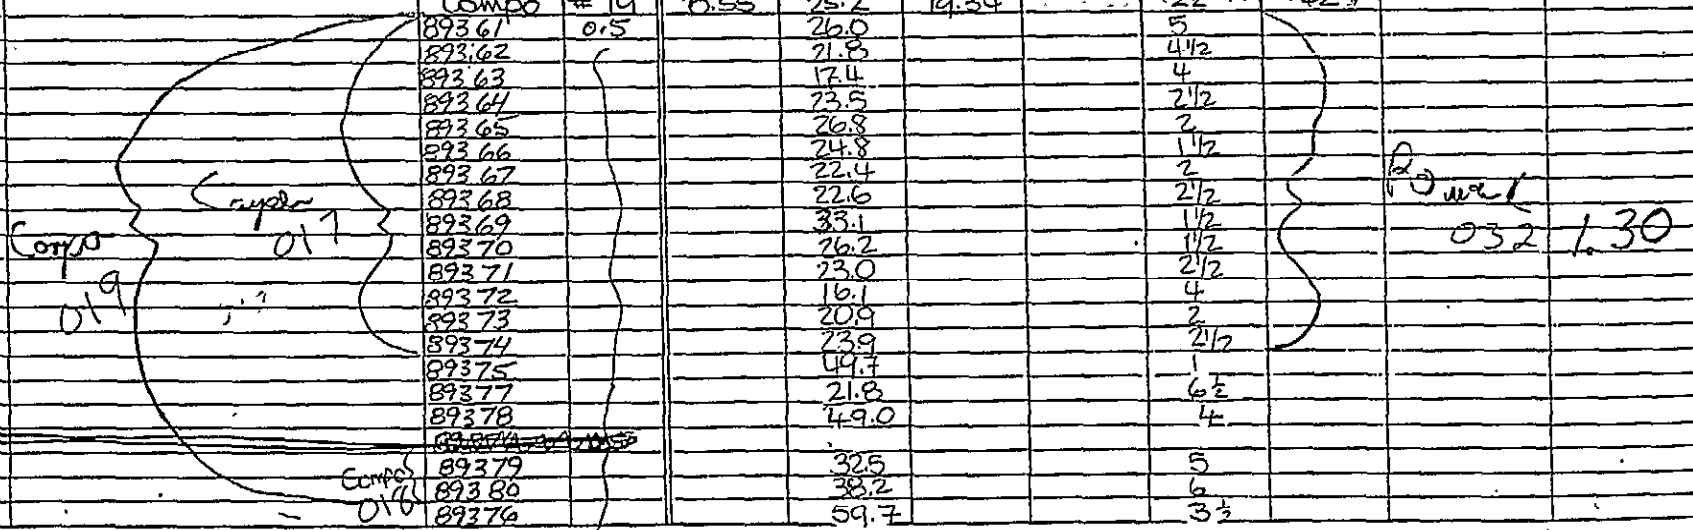 Compo # 19 0.55 25.2 19.54 22
89361 0.5 26.0 5
89362 21.8 4 1/2
89363 17.4 4
89364 23.5 2 1/2
89365 26.8 2
89366 24.8 1 1/2
89367 22.4 2
89368 22.6 2 1/2
89369 33.1 1 1/2
89370 26.2 1 1/2
89371 23.0 2 1/2
89372 16.1 4
89373 20.9 2
89374 23.9 2 1/2
89375 49.7 1
89377 21.8 6 1/2
89378 49.0 4
89379 32.5 5
89380 38.2 6
89376 59.7 3 1/2
Compo
019
017
Compo
018
032 1.30